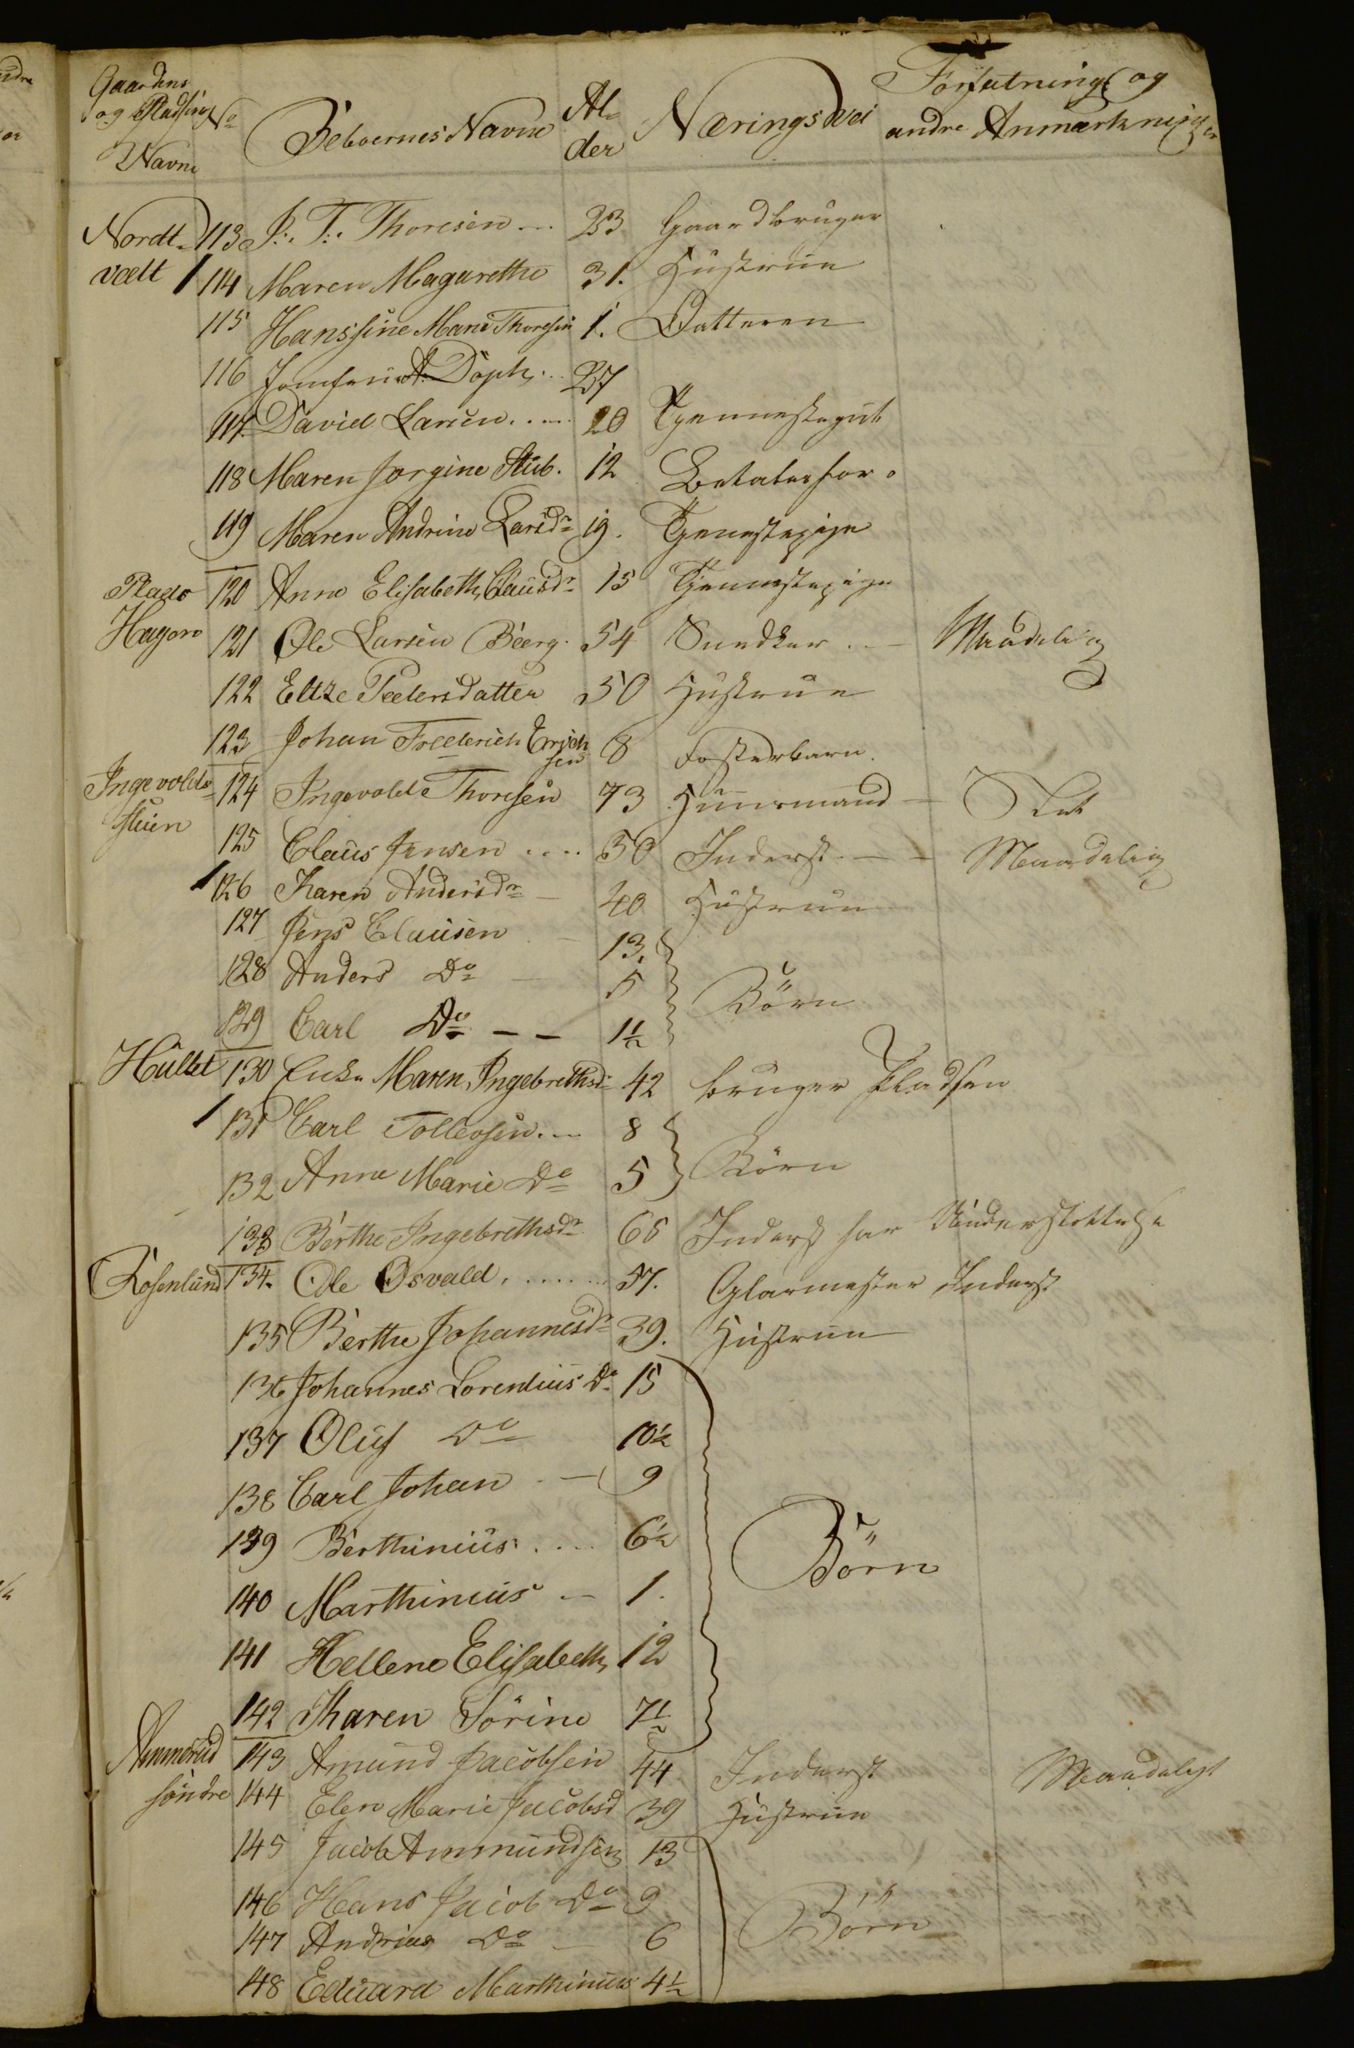 Gaardens
og Pladsens No Beboernes Navne Al- Næringsvei Forfatning og
Navne der andre Anmærkninger
Nordt- 113 P. T. Thoresen 23 Gaardbruger
vedt 114 Maren Magarethe 31. Hustrue
115 Hanssine Marie Thoresen 1. Datteren
116 Jomfrue A. Döph 27
117. David Larsen 20 Tjenestegut
118 Maren Jorgine Stub. 12 Betaler for.
119 Maren Andrine Larsdr 19. Tjenestepige
Plads 120 Anne Elisabeth Clausdr 15 Tjenestepige
Hagen 121 Ole Larsen Beerg. 54 Snedker Maadelig
122 Eltze Peetersdatter 50 Hustrue
123 Johan Frederich Erich
sen 8 Fosterbarn.
Ingevolds- 124 Ingevold Thoresen 73 Huusmand Let
stuen 125 Claus Jensen 50 Inderst Maadelig
126 Karen Andersdr 40 Hustrue
127 Jens Clausen 13.
128 Anders Do 5 Börn
129 Carl Do 1½
Hullet 130 Enke Maren Ingebrethsd 42 bruger Pladsen
131 Carl Tollevsen 8
132 Anne Marie Do 5 Börn
133 Berthe Ingebrethsdr 65 Inderst har Understöttelse
Rosenlund 134. Ole Osvald 37. Glarmester Inderst
135 Berthe Johannesdr 39. Hustrue
136 Johannes Lorentius Do 15
137 Oluf Do 10½
138 Carl Johan 9
139 Berthinius 6½ Börn
140 Marthinius 1.
141 Hellene Elisabeth 12
142 Karen Sörine 7½
Ammerud 143 Amund Jacobsen 44 Inderst Maadeligt
söndre 144 Elen Marie Jacobsd 39 Hustrue
145 Jacob Ammundsen 13
146 Hans Jacob Do 9
147 Andrias Do 6 Börn
148 Eduard Marthinius 4½